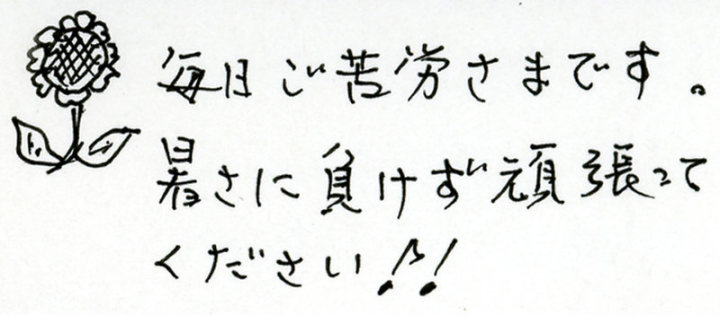 毎日ご苦労さまです。
暑さに負けず頑張って
ください!!